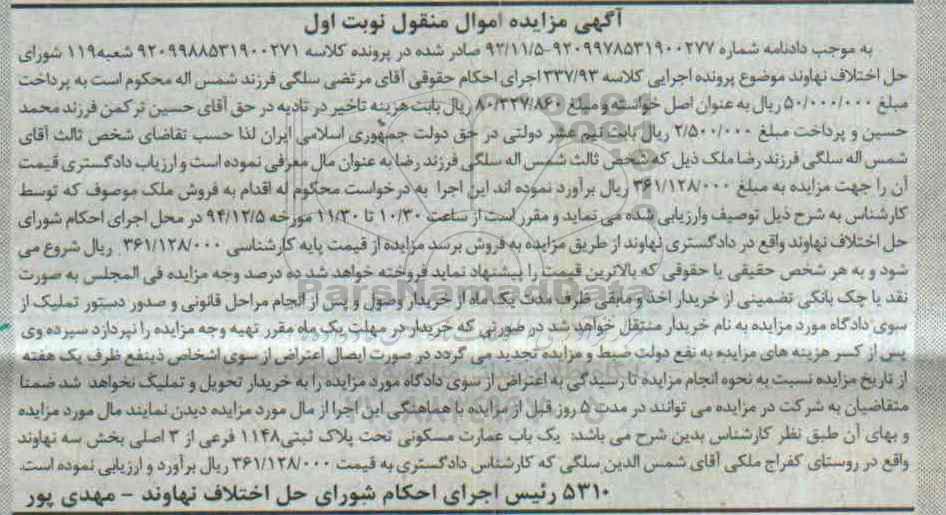 آگهی مزایده اموال منقول نوبت اول
به موجب دادنامه شماره ۹۲۰۹۹۷۸۵۳۱۹۰۰۲۷۷-۹۲/۱۱/۵ صادر شده در پرونده کلاسه ۹۲۰۹۹۸۸۵۳۱۹۰۰۲۷۱ شعبه۱۱۹ شورای
حل اختلاف نهاوند موضوع پرونده اجرایی کلاسه ۳۳۷/۹۳ اجرای احکام حقوقی آقای مرتضی سلگی فرزند شمس اله محکوم است به پرداخت
مبلغ ۵۰/۰۰۰/۰۰۰ ریال به عنوان اصل خواسته و مبلغ ۸۰/۳۲۷/۸۶۰ ریال بابت هزینه تاخیر در تادیه در حق آقای حسین ترکمن فرزند محمد
حسین و پرداخت مبلغ ۲/۵۰۰/۰۰۰ ریال بابت نیم عشر دولتی در حق دولت جمهوری اسلامی ایران لذا حسب تقاضای شخص ثالث آقای
شمس اله سلگی فرزند رضا ملک ذیل که شخص ثالث شمس اله سلگی فرزند رضا به عنوان مال معرفی نموده است و ارزیاب دادگستری قیمت
آن را جهت مزایده به مبلغ ۳۶۱/۱۲۸/۰۰۰ ریال برآورد نموده اند این اجرا به درخواست محکوم له اقدام به فروش ملک موصوف که توسط
کارشناس به شرح ذیل توصیف وارزیابی شده می نماید و مقرر است از ساعت ۱۰/۳۰ تا ۱۱/۳۰ مورخه ۹۴/۱۲/۵ در محل اجرای احکام شورای
حل اختلاف نهاوند واقع در دادگستری نهاوند از طریق مزایده به فروش برسد مزایده از قیمت پایه کارشناسی ۳۶۱/۱۲۸/۰۰۰ ریال شروع می
شود و به هر شخص حقیقی یا حقوقی که بالاترین قیمت را پیشنهاد نماید فروخته خواهد شد ده درصد وجه مزایده فی المجلس به صورت
نقد یا چک بانکی تضمینی از خریدار اخذ و مابقی ظرف مدت یک ماه از خریدار وصول و پس از انجام مراحل قانونی و صدور دستور تملیک از
سوی دادگاه مورد مزایده به نام خریدار منتقل خواهد شد در صورتی که خریدار در مهلت یک ماه مقرر تهیه وجه مزایده را نپردازد سپرده وی
پس از کسر هزینه های مزایده به نفع دولت ضبط و مزایده تجدید می گردد در صورت ایصال اعتراض از سوی اشخاص ذینفع ظرف یک هفته
از تاریخ مزایده نسبت به نحوه انجام مزایده تا رسیدگی به اعتراض از سوی دادگاه مورد مزایده را به خریدار تحویل و تملیک نخواهد شد ضمنا
متقاضیان به شرکت در مزایده می توانند در مدت ۵ روز قبل از مزایده با هماهنگی این اجرا از مال مورد مزایده دیدن نمایند مال مورد مزایده
و بهای آن طبق نظر کارشناس بدین شرح می باشد: یک باب عمارت مسکونی تحت پلاک ثبتی۱۱۴۸ فرعی از ۳ اصلی بخش سه نهاوند
واقع در روستای کفراج ملکی آقای شمس الدین سلگی که کارشناس دادگستری به قیمت ۳۶۱/۱۲۸/۰۰۰ ریال برآورد و ارزیابی نموده است.
۵۳۱۰ رئیس اجرای احکام شورای حل اختلاف نهاوند - مهدی پور
ParsNamadData